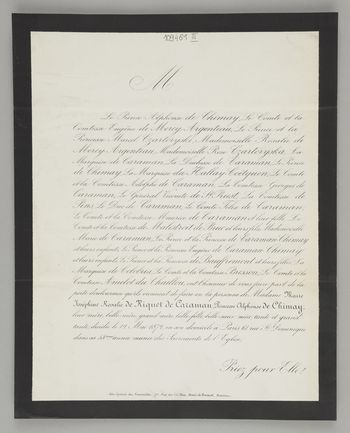 M
Le Prince Alphonse de Chimay, Le Comte et la
Comtesse Eugène de Mercy Argenteau, Le Prince et la
Princesse Marcel Czartoryski, Mademoiselle Rosalie de
Mercy Argenteau, Mademoiselle Rose Czartoryska, La
Marquise de Caraman, La Duchesse de Caraman, Le Prince
de Chimay, La Marquise du Hallay Coëtquen, Le Comte
et la Comtesse Adolphe de Caraman, La Comtesse Georges de
Caraman, Le Général Vicomte de St Priest, La Comtesse de
Pins, Le Duc de Caraman, Le Comte Félix de Caraman,
Le Comte et la Comtesse Maurice de Caraman et leur fille, Le
Comte et la Comtesse de et leurs fils, Mademoiselle
Marie de Caraman, Le Prince et la Princesse de Caraman Chimay
et leurs enfants, le Prince et la Princesse Eugène de Caraman Chimay
et leurs enfants, Le Prince et la Princesse de Bauffremont et leurs fils, La
Marquise de , Le Comte et la Comtesse , Le Comte et la
Comtesse Amelot du Chaillou, ont l'honneur de vous faire part de la
perte douloureuse qu'ils viennent de faire en la personne de Madame Marie
Joséphine Rosalie de Riquet de Caraman, Princesse Alphonse de Chimay,
leur mère, belle-mère, grand'mère, belle-fille, belle-sœur, tante et grand'
tante, décédée le 12 Mai 1872, en son domicile à Paris, 61 rue St Dominique
dans sa année, munie des Sacrements de l'Eglise.
Priez pour Elle!